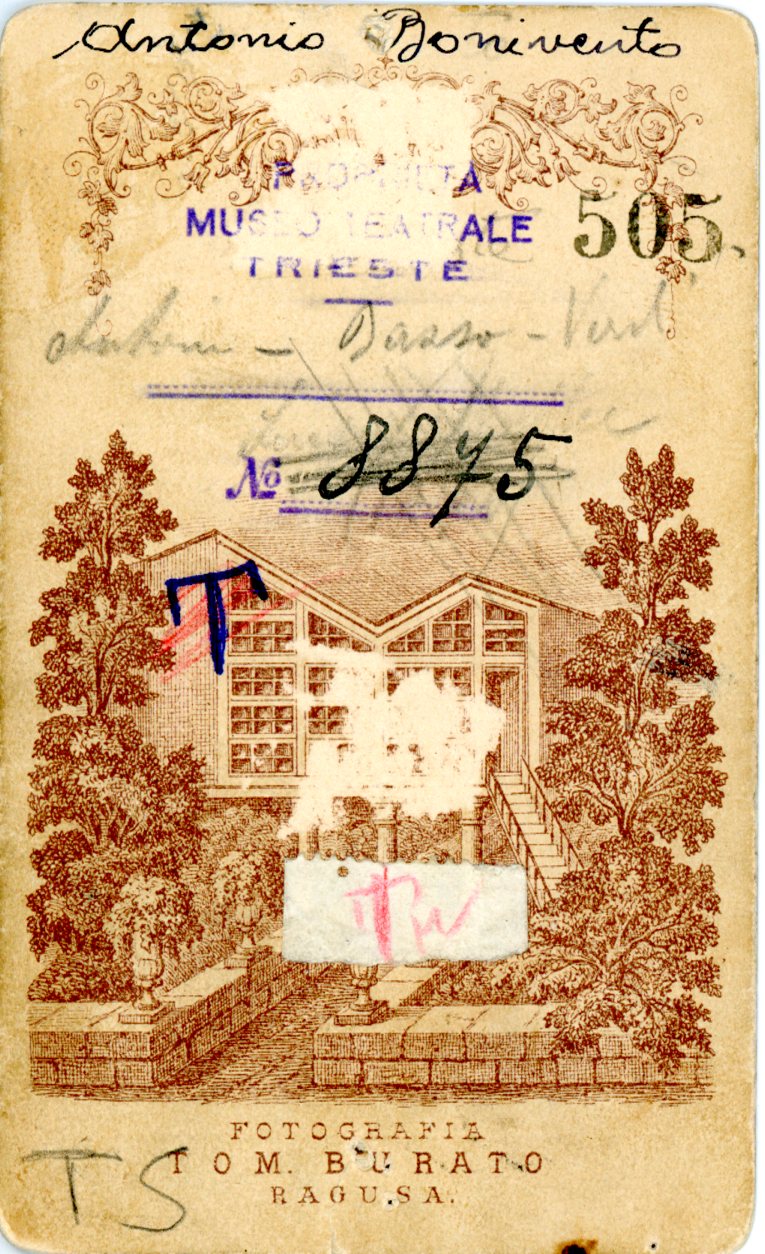 Antonio Bonivento
PROPRIETA
MUSEO TEATRALE
TRIESTE
505.
Basso -
№ 8875
T
FOTOGRAFIA
TOM. BURATO
RAGUSA.
TS